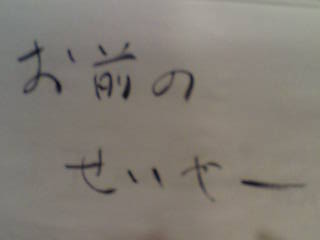 お前の
せいやー